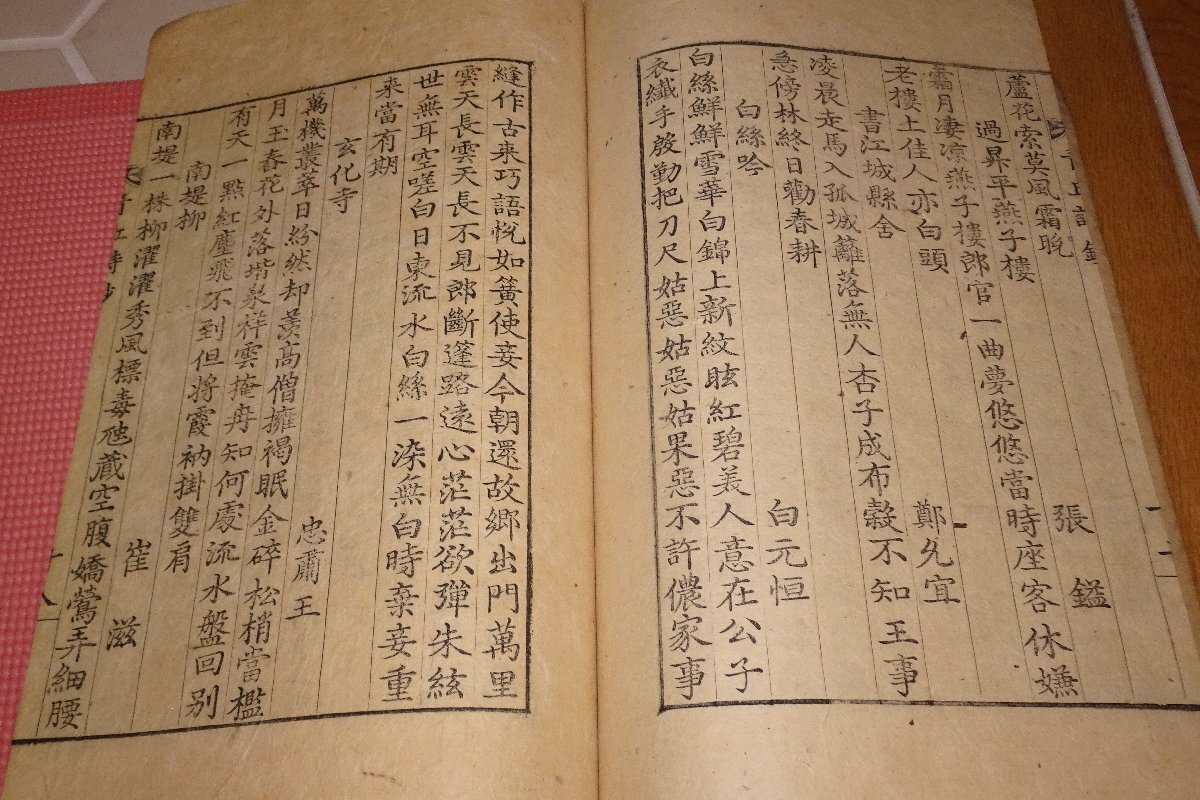 蘆花索莫風霜晩
過昇平燕子樓
張鎰
霜月凄凉燕子樓郎官一曲夢悠悠當時座客休嫌
老樓上佳人亦白頭
書江城縣舍
鄭允宜
凌晨走馬入孤城籬落無人杏子成布穀不知王事
急傍林終日勸春耕
白絲吟
白元恒
白絲鮮鮮雪華白錦上新紋眩紅碧美人意在公子
衣纖手殷勤把刀尺姑惡姑惡姑果惡不許儂家事
縫作古来巧語恱如簧使妾今朝還故鄉出門萬里
雲天長雲天長不見郎斷蓬路遠心茫茫欲彈朱絃
世無耳空嗟白日東流水白絲一染無白時棄妾重
来當有期
玄化寺
忠肅王
萬機叢萃日紛然却羡高僧擁褐眠金碎松梢當檻
月玉春花外落堦泉祥雲掩冉知何處流水盤回别
有天一點紅塵飛不到但將霞衲掛雙肩
南堤柳
崔滋
南堤一株柳濯濯秀風標毒虺藏空腹嬌鶯弄細腰